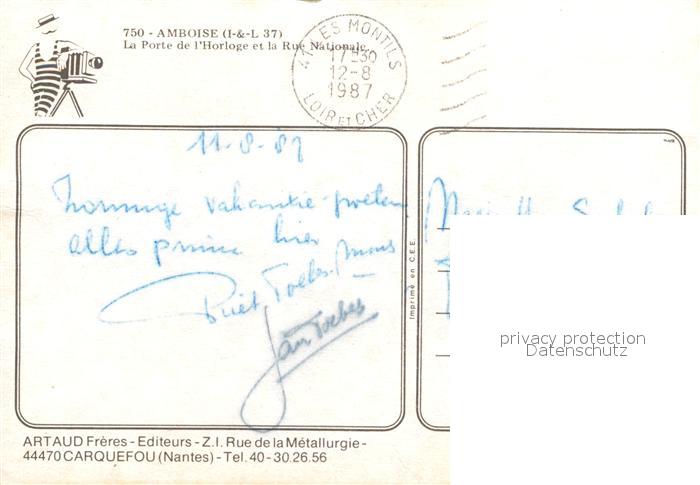 750 - AMBOISE (I-&-L 37)
La Porte de l'Horloge et la Rue Nationale
41 LES MONTILS
17H30
12-8
1987
LOIR ET CHER
11-8-87
zonnige vakantie-groeten
alles prima hier
Toebes
Jan Toebes
Imprimé en C.E.E.
privacy protection
Datenschutz
ARTAUD Frères - Editeurs - Z.I. Rue de la Métallurgie -
44470 CARQUEFOU (Nantes) - Tel. 40 - 30.26.56